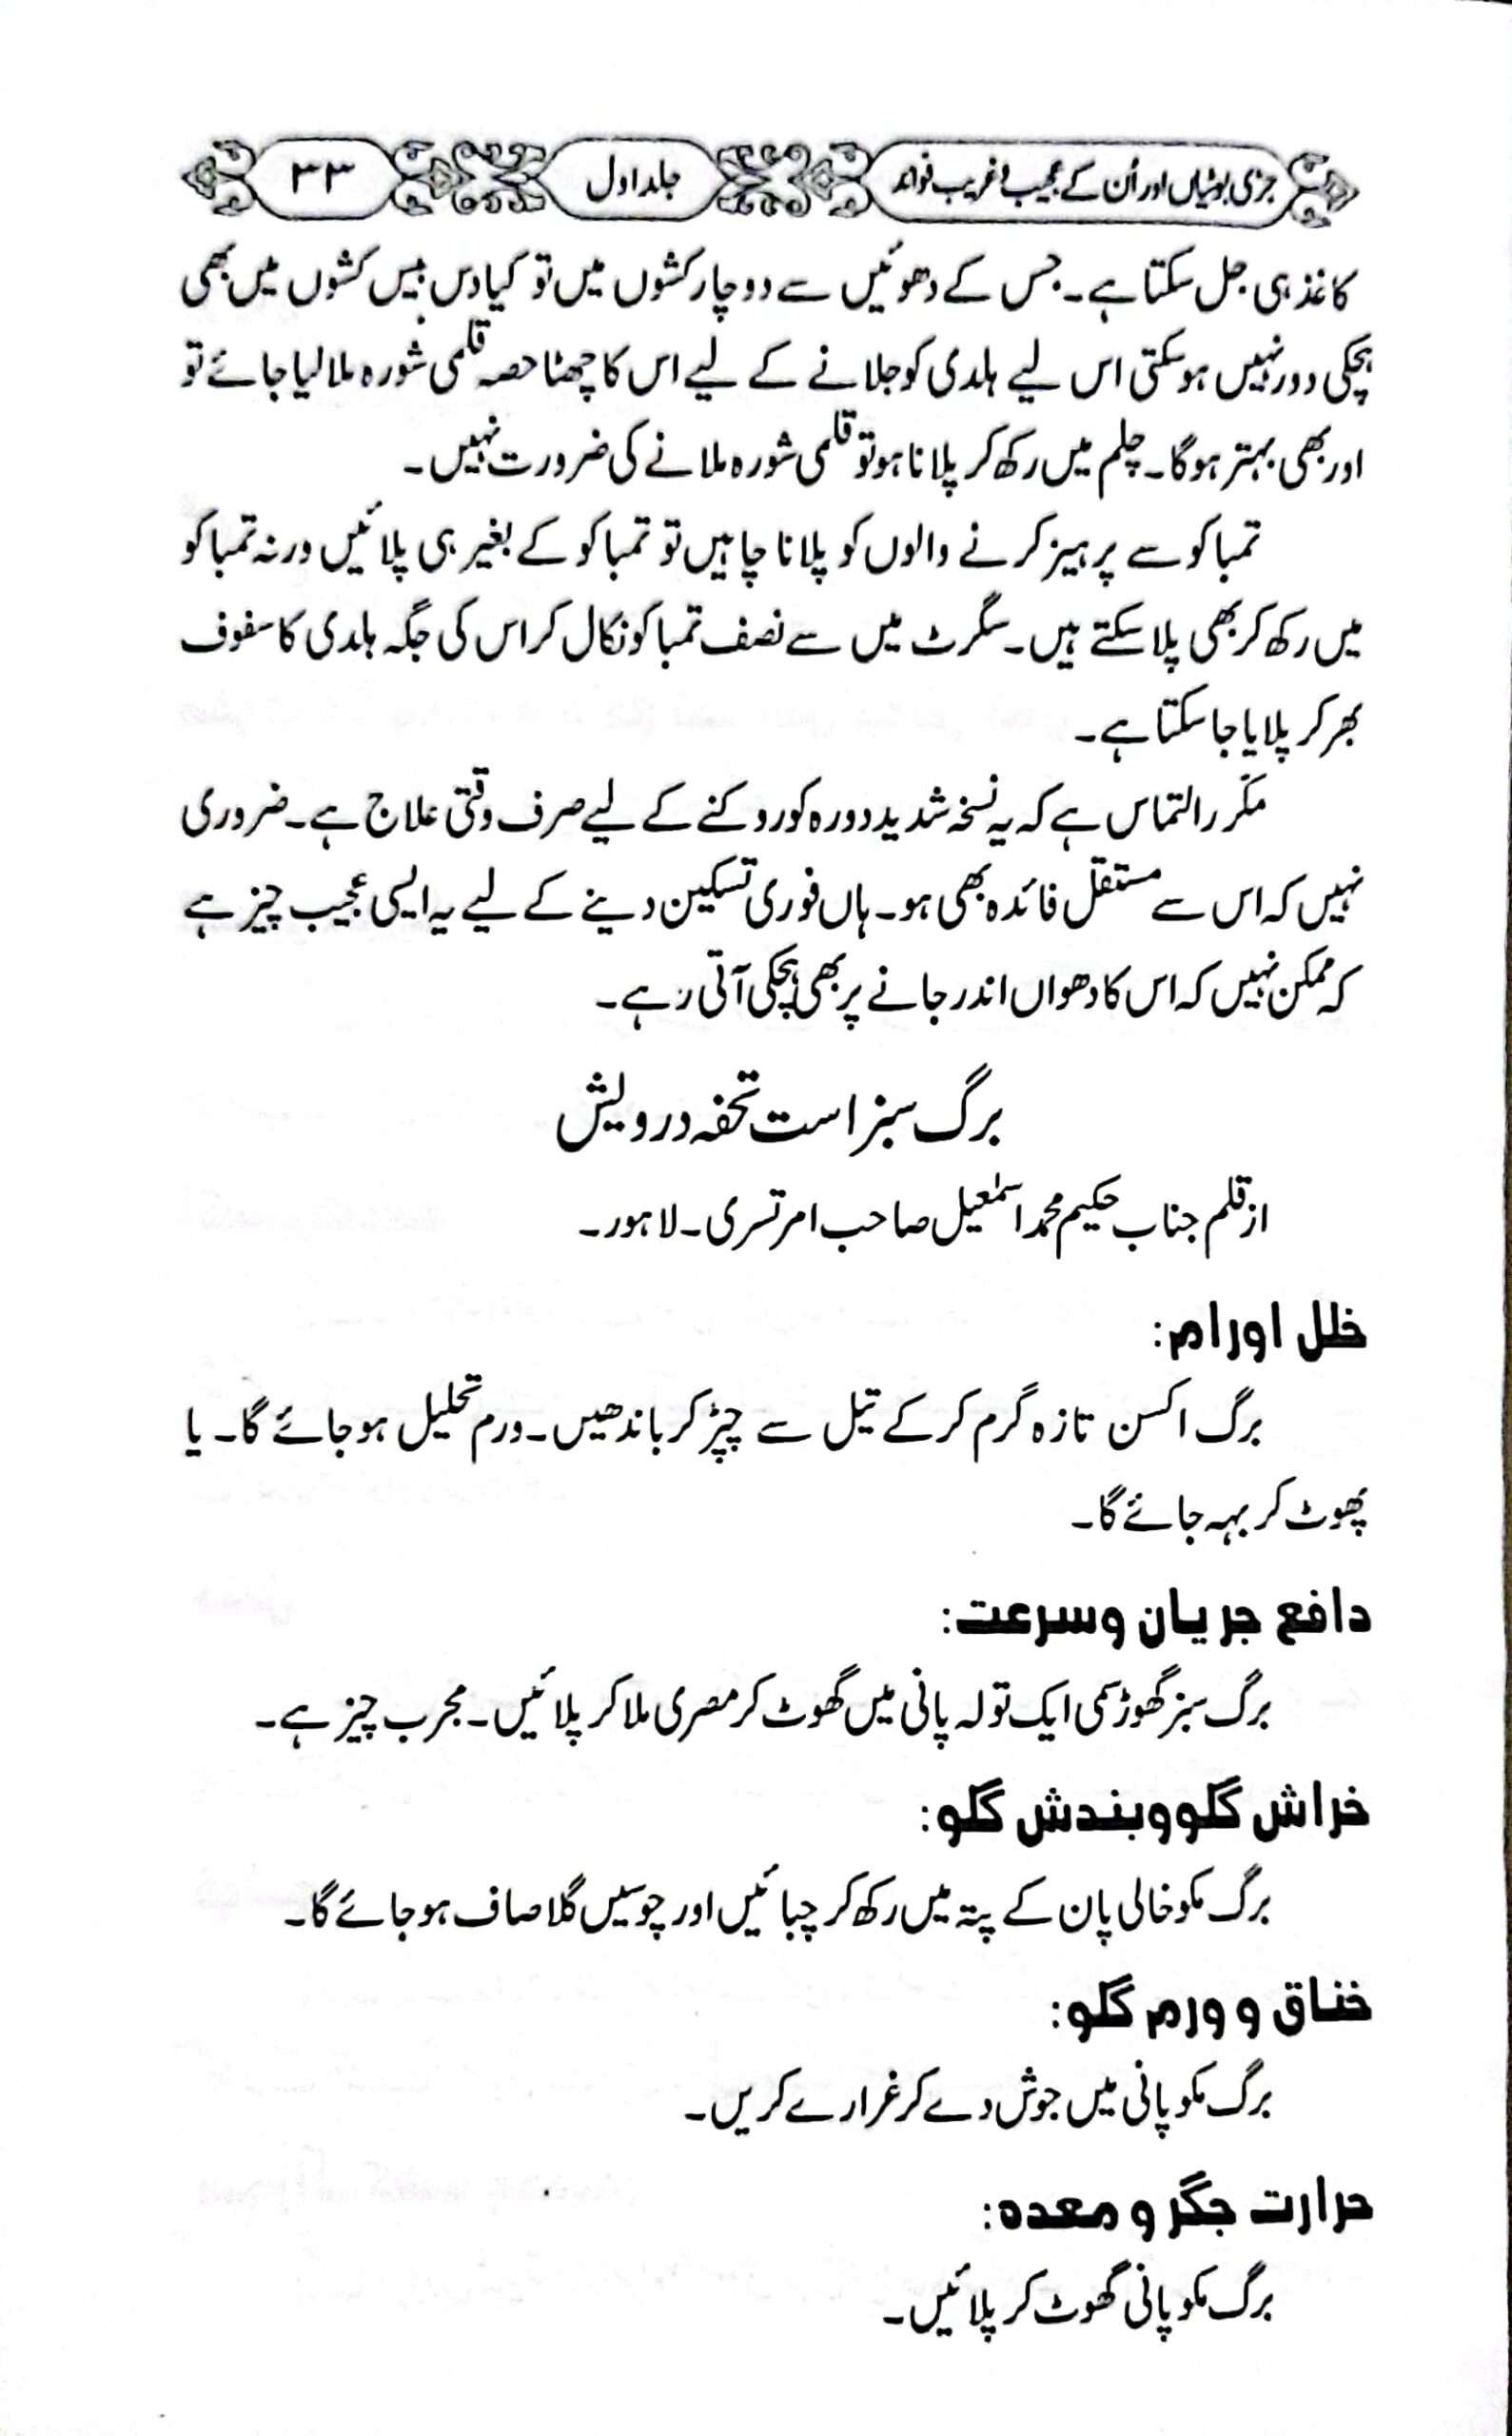 جڑی بوٹیاں اور اُن کے عجیب و غریب فوائد جلد اول ۳۳
کاغذ ہی جل سکتا ہے۔ جس کے دھوئیں سے دو چار کشوں میں تو کیا دس بیس کشوں میں بھی
ہچکی دور نہیں ہو سکتی اس لیے ہلدی کو جلانے کے لیے اس کا چھٹا حصہ قلمی شورہ ملا لیا جائے تو
اور بھی بہتر ہو گا۔ چلم میں رکھ کر پلانا ہو تو قلمی شورہ ملانے کی ضرورت نہیں۔
تمباکو سے پرہیز کرنے والوں کو پلانا چاہیں تو تمباکو کے بغیر ہی پلائیں ورنہ تمباکو
میں رکھ کر بھی پلا سکتے ہیں۔ سگرٹ میں سے نصف تمباکو نکال کر اس کی جگہ ہلدی کا سفوف
بھر کر پلایا جا سکتا ہے۔
مکرّر التماس ہے کہ یہ نسخہ شدید دورہ کو روکنے کے لیے صرف وقتی علاج ہے۔ ضروری
نہیں کہ اس سے مستقل فائدہ بھی ہو۔ ہاں فوری تسکین دینے کے لیے یہ ایسی عجیب چیز ہے
کہ ممکن نہیں کہ اس کا دھواں اندر جانے پر بھی ہچکی آتی رہے۔
برگ سبز است تحفہ درویش
از قلم جناب حکیم محمد اسمٰعیل صاحب امرتسری۔ لاہور۔
خلل اورام:
برگ اکسن تازہ گرم کر کے تیل سے چپڑ کر باندھیں۔ ورم تحلیل ہو جائے گا۔ یا
پھوٹ کر بہہ جائے گا۔
دافع جریان وسرعت:
برگ سبز گھوڑسمی ایک تولہ پانی میں گھوٹ کر مصری ملا کر پلائیں۔ مجرب چیز ہے۔
خراش گلو وبندش گلو:
برگ مکو خالی پان کے پتہ میں رکھ کر چبائیں اور چوسیں گلا صاف ہو جائے گا۔
خناق و ورم گلو:
برگ مکو پانی میں جوش دے کر غرارے کریں۔
حرارت جگر و معدہ:
برگ مکو پانی گھوٹ کر پلائیں۔